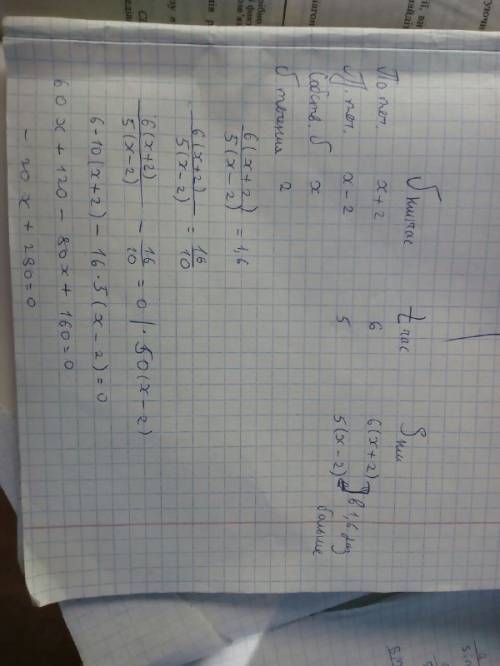 V км/час t час S км
По теч. x+2 6 6(x+2) в 1,6 раз
Пр. теч. x-2 5 5(x-2) больше
Собств. V x
V течения 2
6(x+2)/5(x-2) = 1,6
6(x+2)/5(x-2) = 16/10
6(x+2)/5(x-2) - 16/10 = 0 |·50(x-2)
6·10(x+2) - 16·5(x-2) = 0
60x + 120 - 80x + 160 = 0
- 20x + 280 = 0